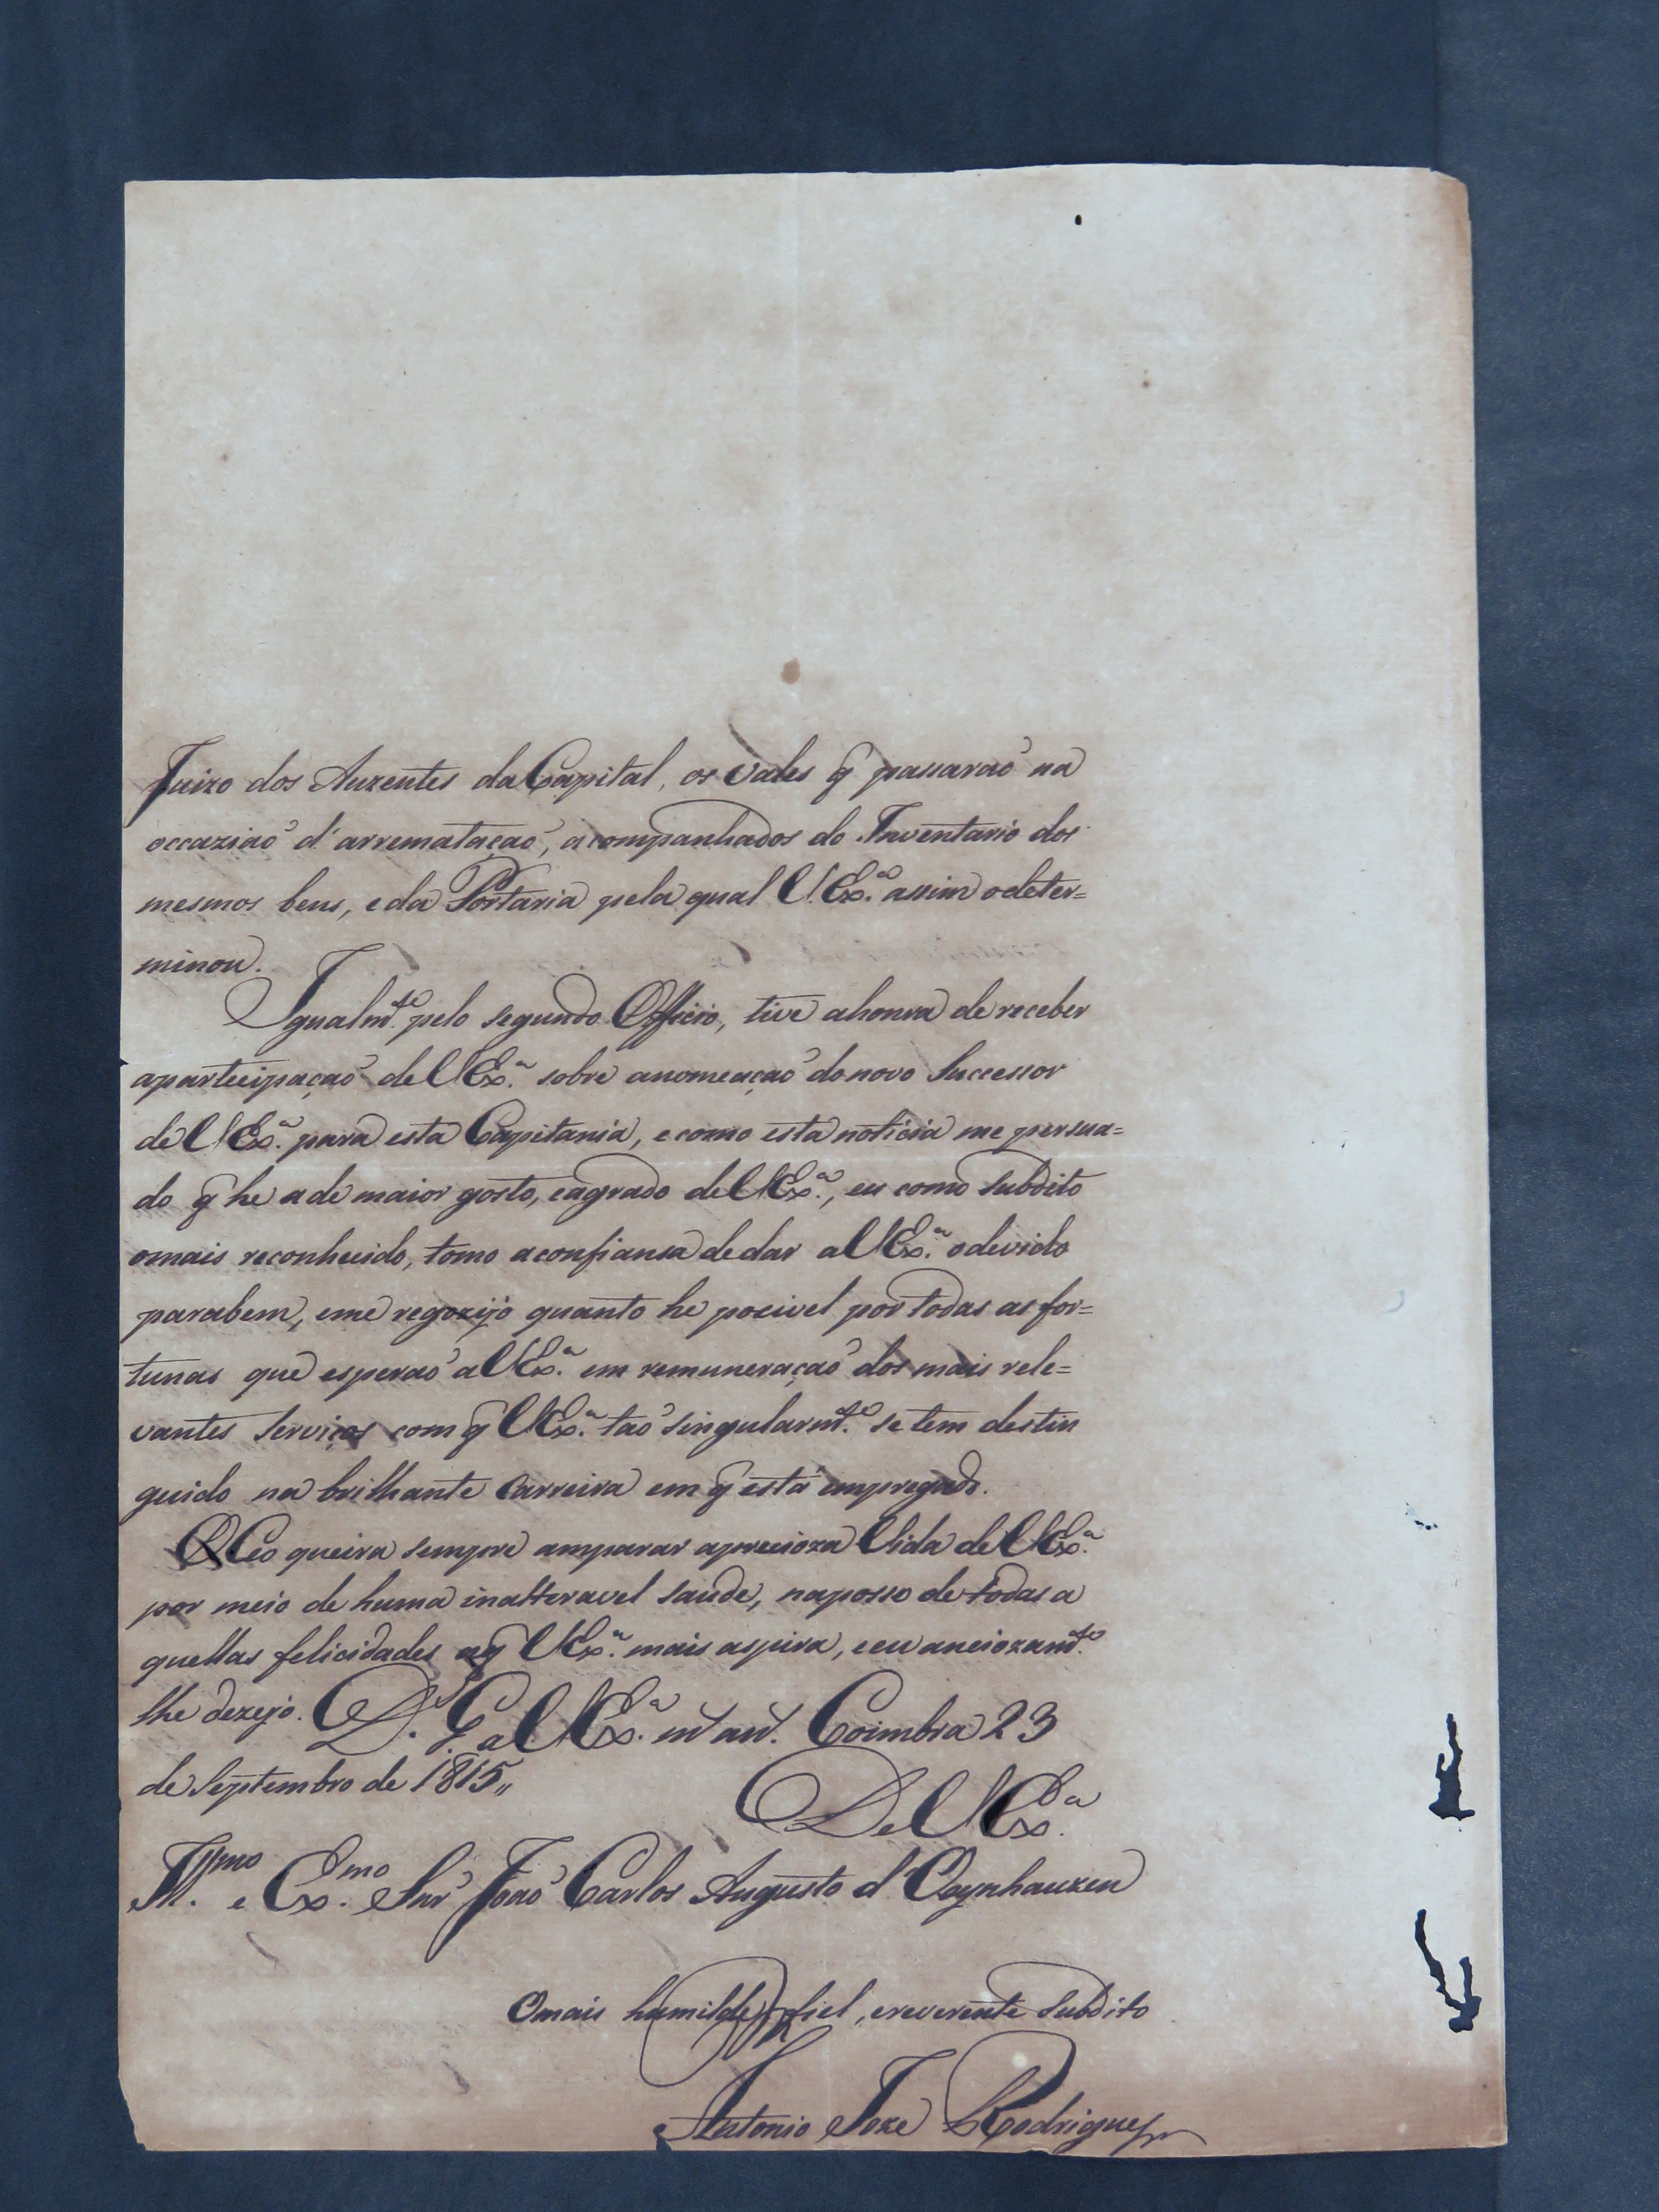 Juizo dos Auzentes da Capital, os Vales q̃ passaraõ na
occaziaõ d'arremataçaõ, acompanhados do Inventario dos
mesmos bens, e da Portaria pela qual V. Ex.ª assim o deter=
minou.
Igualm.te pelo segundo Officio, tive a honra de receber
a participaçaõ de V Ex.ª sobre a nomeaçaõ do novo Successor
de V Ex.ª para esta Capitania, e como esta noticia me persua=
do q̃ he a de maior gosto, e agrado de V Ex.ª, eu como Subdito
o mais reconhecido, tomo a confiansa de dar a V Ex.ª o devido
parabem, e me regozijo quanto he pocivel por todas as for=
tunas que esperaõ a V Ex.ª em remuneraçaõ dos mais rele=
vantes Serviços com q̃ V Ex.ª taõ singularm.te se tem destin
guido na brilhante Carreira em q̃ está empregado.
O Ceo queira sempre amparar a precioza Vida de V Ex.ª
por meio de huma inalteravel saude, na posse de todas a
quellas felicidades a q̃ V Ex.ª mais aspira, e eu anciozam.te
lhe dezejo. D.s G.e a V Ex.ª m.s an.s Coimbra 23
de Septembro de 1815,,
De V Ex.ª
Ill.mo e Ex.mo Snr' Joaõ Carlos Augusto d'Oeynhauzen
O mais humilde, fiel, e reverente Subdito
Antonio Joze Rodrigues